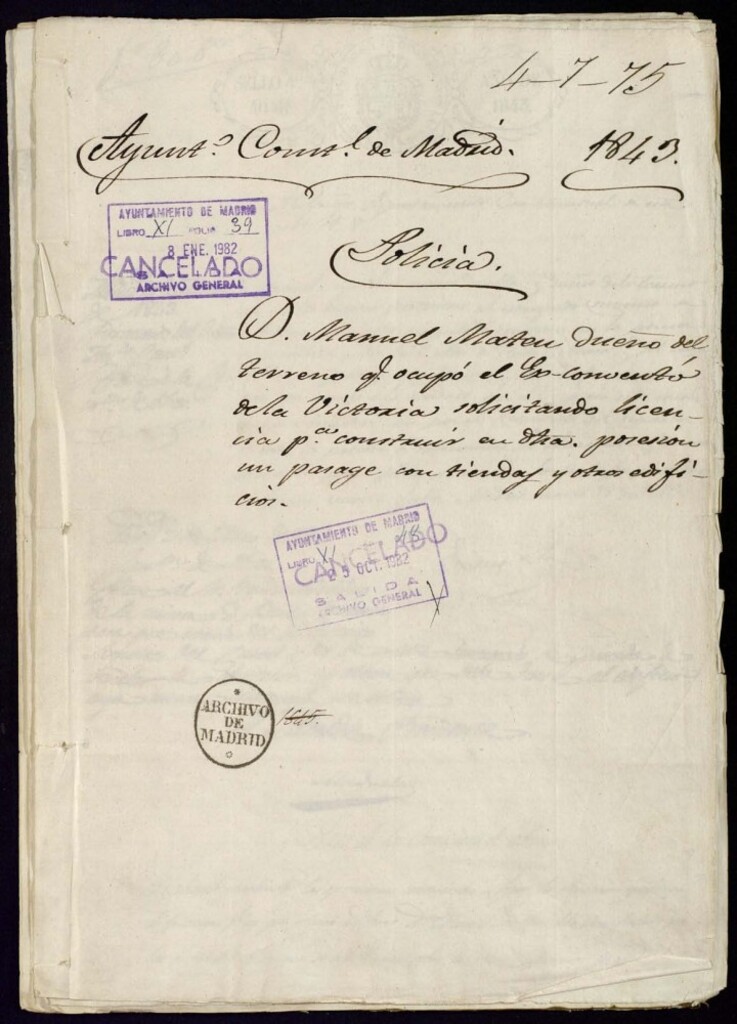 4-7-75
Ayunt.º Const.l de Madrid. 1843.
AYUNTAMIENTO DE MADRID
LIBRO XI FOLIO 39
8 ENE. 1982
CANCELADO
SALIDA
ARCHIVO GENERAL
Policia.
D. Manuel Mateu dueño del
terreno q.e ocupó el Ex-convento
de la Victoria solicitando licen-
cia p.a construir en dha. posesión
un pasage con tiendas y otros edifi-
cios.
AYUNTAMIENTO DE MADRID
LIBRO VI 48
CANCELADO
25 OCT. 1982
SALIDA
ARCHIVO GENERAL
ARCHIVO
DE
MADRID
1645.